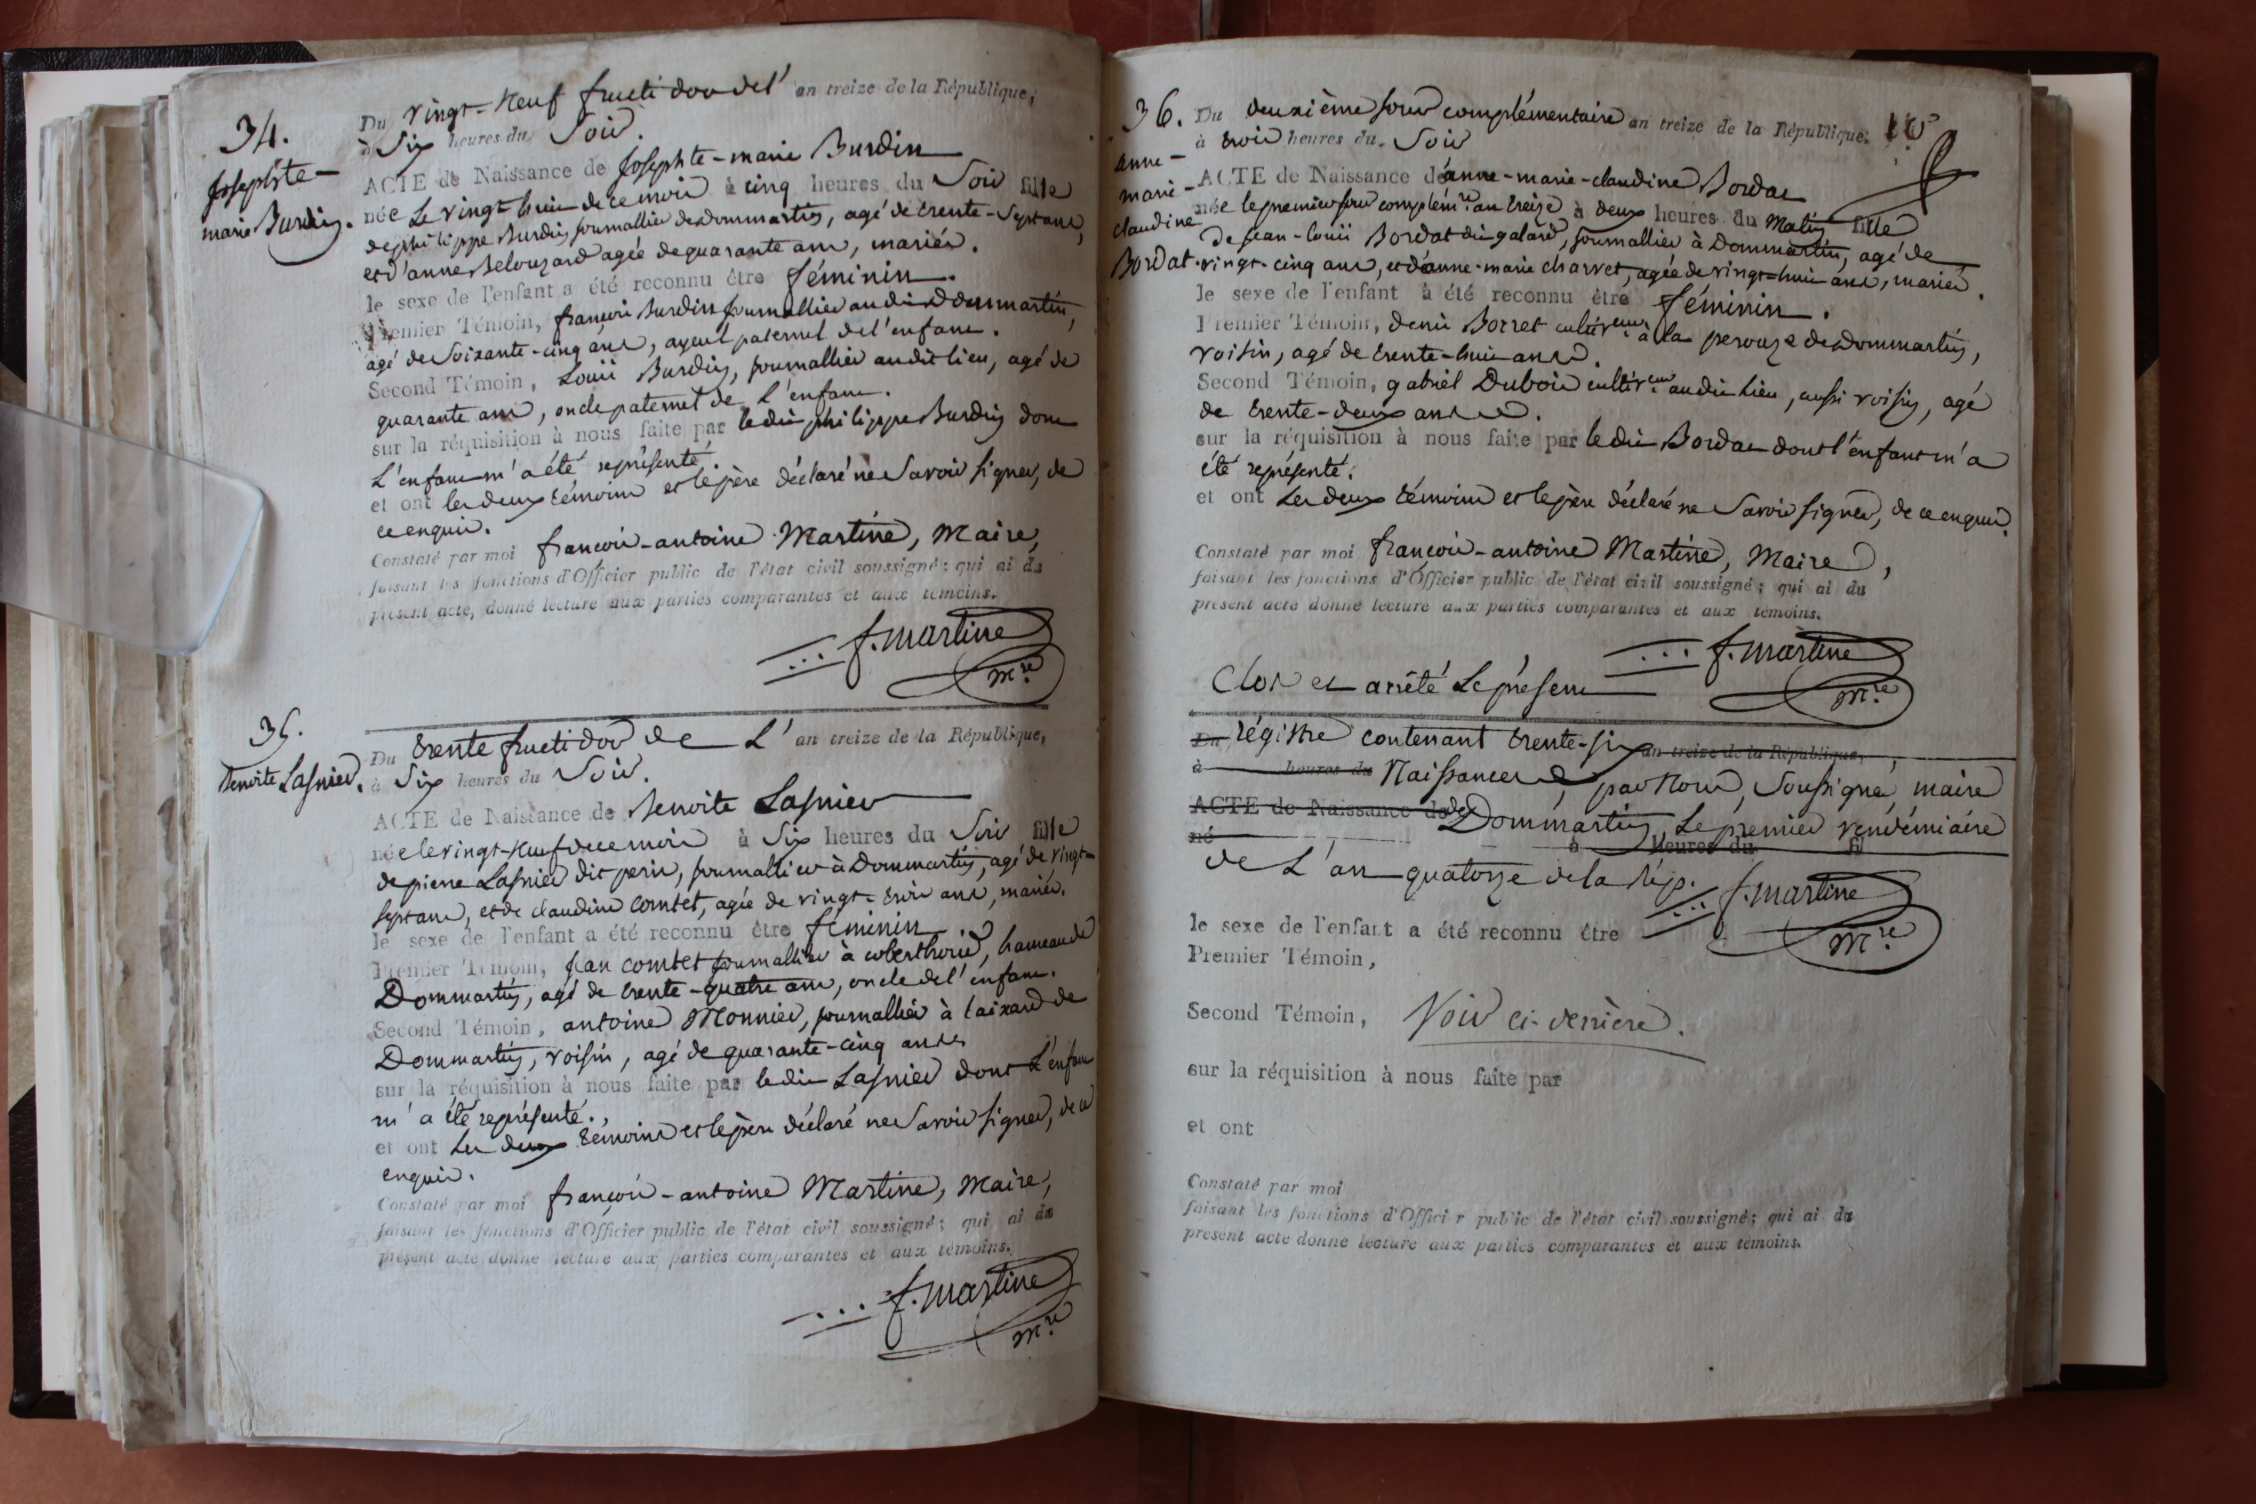 34.
Josephte-
marie Burdin.
Du vingt-neuf fructidor de l' an treize de la République,
à Six heures du Soir.
ACTE de Naissance de Josephte-marie Burdin
née Le vingt-huit de ce mois à cinq heures du Soir fille
de philippe Burdin journallier de Dommartin, agé de trente-Sept ans,
et d'anne Belouzard agée de quarante ans, mariés.
le sexe de l'enfant a été reconnu être féminin.
Premier Témoin, françois Burdin journallier au dit Dommartin,
agé de Soixante-cinq ans, ayeul paternel de l'enfant.
Second Témoin, Louis Burdin, journallier audit lieu, agé de
quarante ans, oncle paternel de L'enfant.
sur la réquisition à nous faite par ledit philippe Burdin dont
L'enfant m'a été représenté.
et ont les deux témoins et le père déclaré ne Savoir signer, de
ce enquis.
Constaté par moi françois-antoine Martine, Maire,
faisant les fonctions d'Officier public de l'état civil soussigné; qui ai du
présent acte, donné lecture aux parties comparantes et aux témoins.
f. Martine
Mre.
35.
Benoite Lasnier.
Du trente fructidor de L' an treize de la République,
à Six heures du Soir.
ACTE de Naissance de Benoite Lasnier
née le vingt-neuf de ce mois à Six heures du Soir fille
de pierre Lasnier dit perin, journallier à Dommartin, agé de vingt-
sept ans, et de claudine comtet, agée de vingt-trois ans, mariés.
le sexe de l'enfant a été reconnu être féminin
Premier Témoin, jean comtet journallier à coberthoud, hameau de
Dommartin, agé de trente-quatre ans, oncle de l'enfant.
Second Témoin, antoine Monnier, journallier à taixard de
Dommartin, voisin, agé de quarante-cinq ans
sur la réquisition à nous faite par ledit Lasnier dont L'enfant
m'a été représenté.
et ont Les deux témoins et le père déclaré ne Savoir signer, de ce
enquis.
Constaté par moi françois-antoine Martine, Maire,
faisant les fonctions d'Officier public de l'état civil soussigné; qui ai du
présent acte donné lecture aux parties comparantes et aux témoins.
f. Martine
Mre.
36.
anne-
marie-
claudine
Bordat.
Du deuxième jour complémentaire an treize de la République,
à trois heures du Soir
ACTE de Naissance de anne-marie-claudine Bordat
née le premier jour complémre. an treize à deux heures du Matin fille
De jean-louis Bordat dit galard, journallier à Dommartin, agé de
vingt-cinq ans, et d'anne-marie charvet, agée de vingt-huit ans, mariés.
le sexe de l'enfant à été reconnu être féminin.
Premier Témoin, denis Borret cultiveur. à la perouze de Dommartin,
voisin, agé de trente-huit ans.
Second Témoin, gabriël Dubois cultiveur. audit lieu, aussi voisin, agé
de trente-deux ans.
sur la réquisition à nous faite par ledit Bordat dont l'enfant m'a
été représenté.
et ont Les deux témoins et le père déclaré ne Savoir signer, de ce enquis.
Constaté par moi françois-antoine Martine, Maire,
faisant les fonctions d'Officier public de l'état civil soussigné; qui ai du
présent acte donné lecture aux parties comparantes et aux témoins.
f. Martine
Mre.
Clos et arrêté Le présent
Du régistre contenant trente-six an treize de la République,
à heures du Naissances par Nous, Soussigné, maire
ACTE de Naissance de de Dommartin, Le premier vendémiaire
né à heures du fi
de L'an quatorze de la Rép. f. Martine
Mre.
le sexe de l'enfant a été reconnu être
Premier Témoin,
Second Témoin, Voir ci-derrière.
sur la réquisition à nous faite par
et ont
Constaté par moi
faisant les fonctions d'Officier public de l'état civil soussigné; qui ai du
présent acte donné lecture aux parties comparantes et aux témoins.